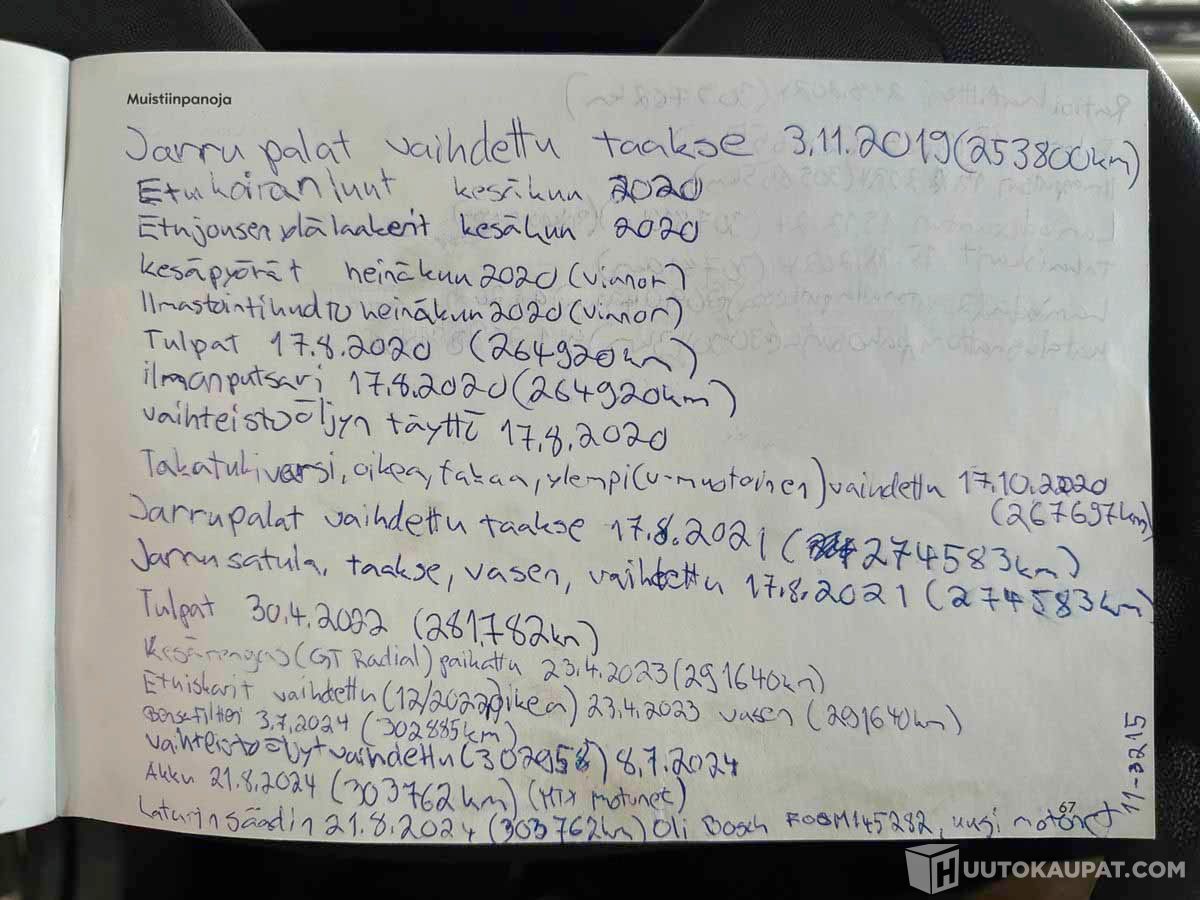 Muistiinpanoja
Jarrupalat vaihdettu taakse 3.11.2019 (253800km)
Etukoiranluut kesäkuu 2020
Etujousen ylälaakerit kesäkuu 2020
kesäpyörät heinäkuu 2020 (vianor)
Ilmastointihuolto heinäkuu 2020 (vianor)
Tulpat 17.8.2020 (264920km)
ilmanputsari 17.8.2020 (264920km)
vaihteistoöljyn täyttö 17.8.2020
Takatukivarsi, oikea, takaa, ylempi (v-mustoinen) vaihdettu 17.10.2020
(267697km)
Jarrupalat vaihdettu taakse 17.8.2021 (274583km)
Jarrusatula, taakse, vasen, vaihdettu 17.8.2021 (274583km)
Tulpat 30.4.2022 (281782km)
Kesärengas (GT Radial) paikattu 23.4.2023 (291640km)
Etuiskarit vaihdettu (12/2022 oikea) 23.4.2023 vasen (291640km)
Bensafiltteri 3.7.2024 (302885km)
vaihteistoöljyt vaihdettu (302958) 8.7.2024
Akku 21.8.2024 (303762km) (MTX motonet)
Laturin säädin 21.8.2024 (303762km) Oli Bosch F00M145282, uusi motonet
11-3215
67
HUUTOKAUPAT.COM